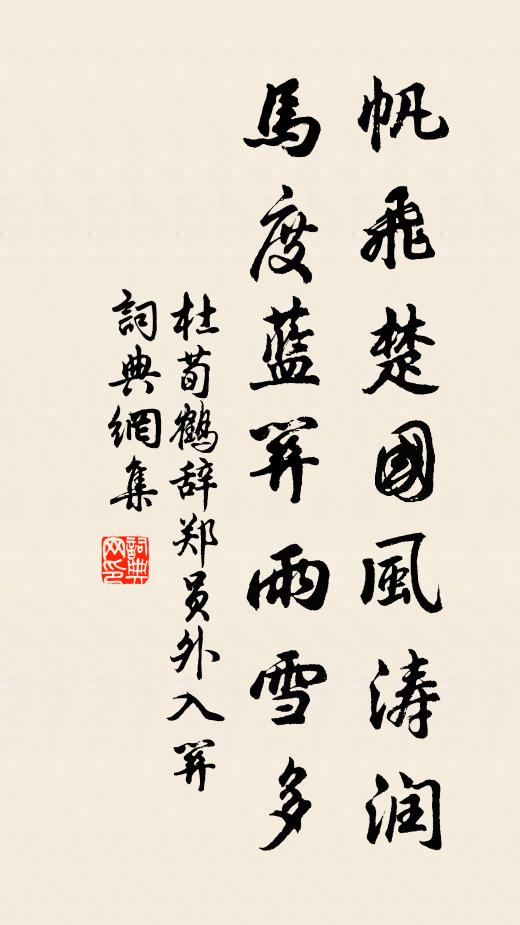 帆飛楚國風涛润
馬度藍関雨雪多
杜荀鶴辞郑员外入関
詞典網集
詞典网印